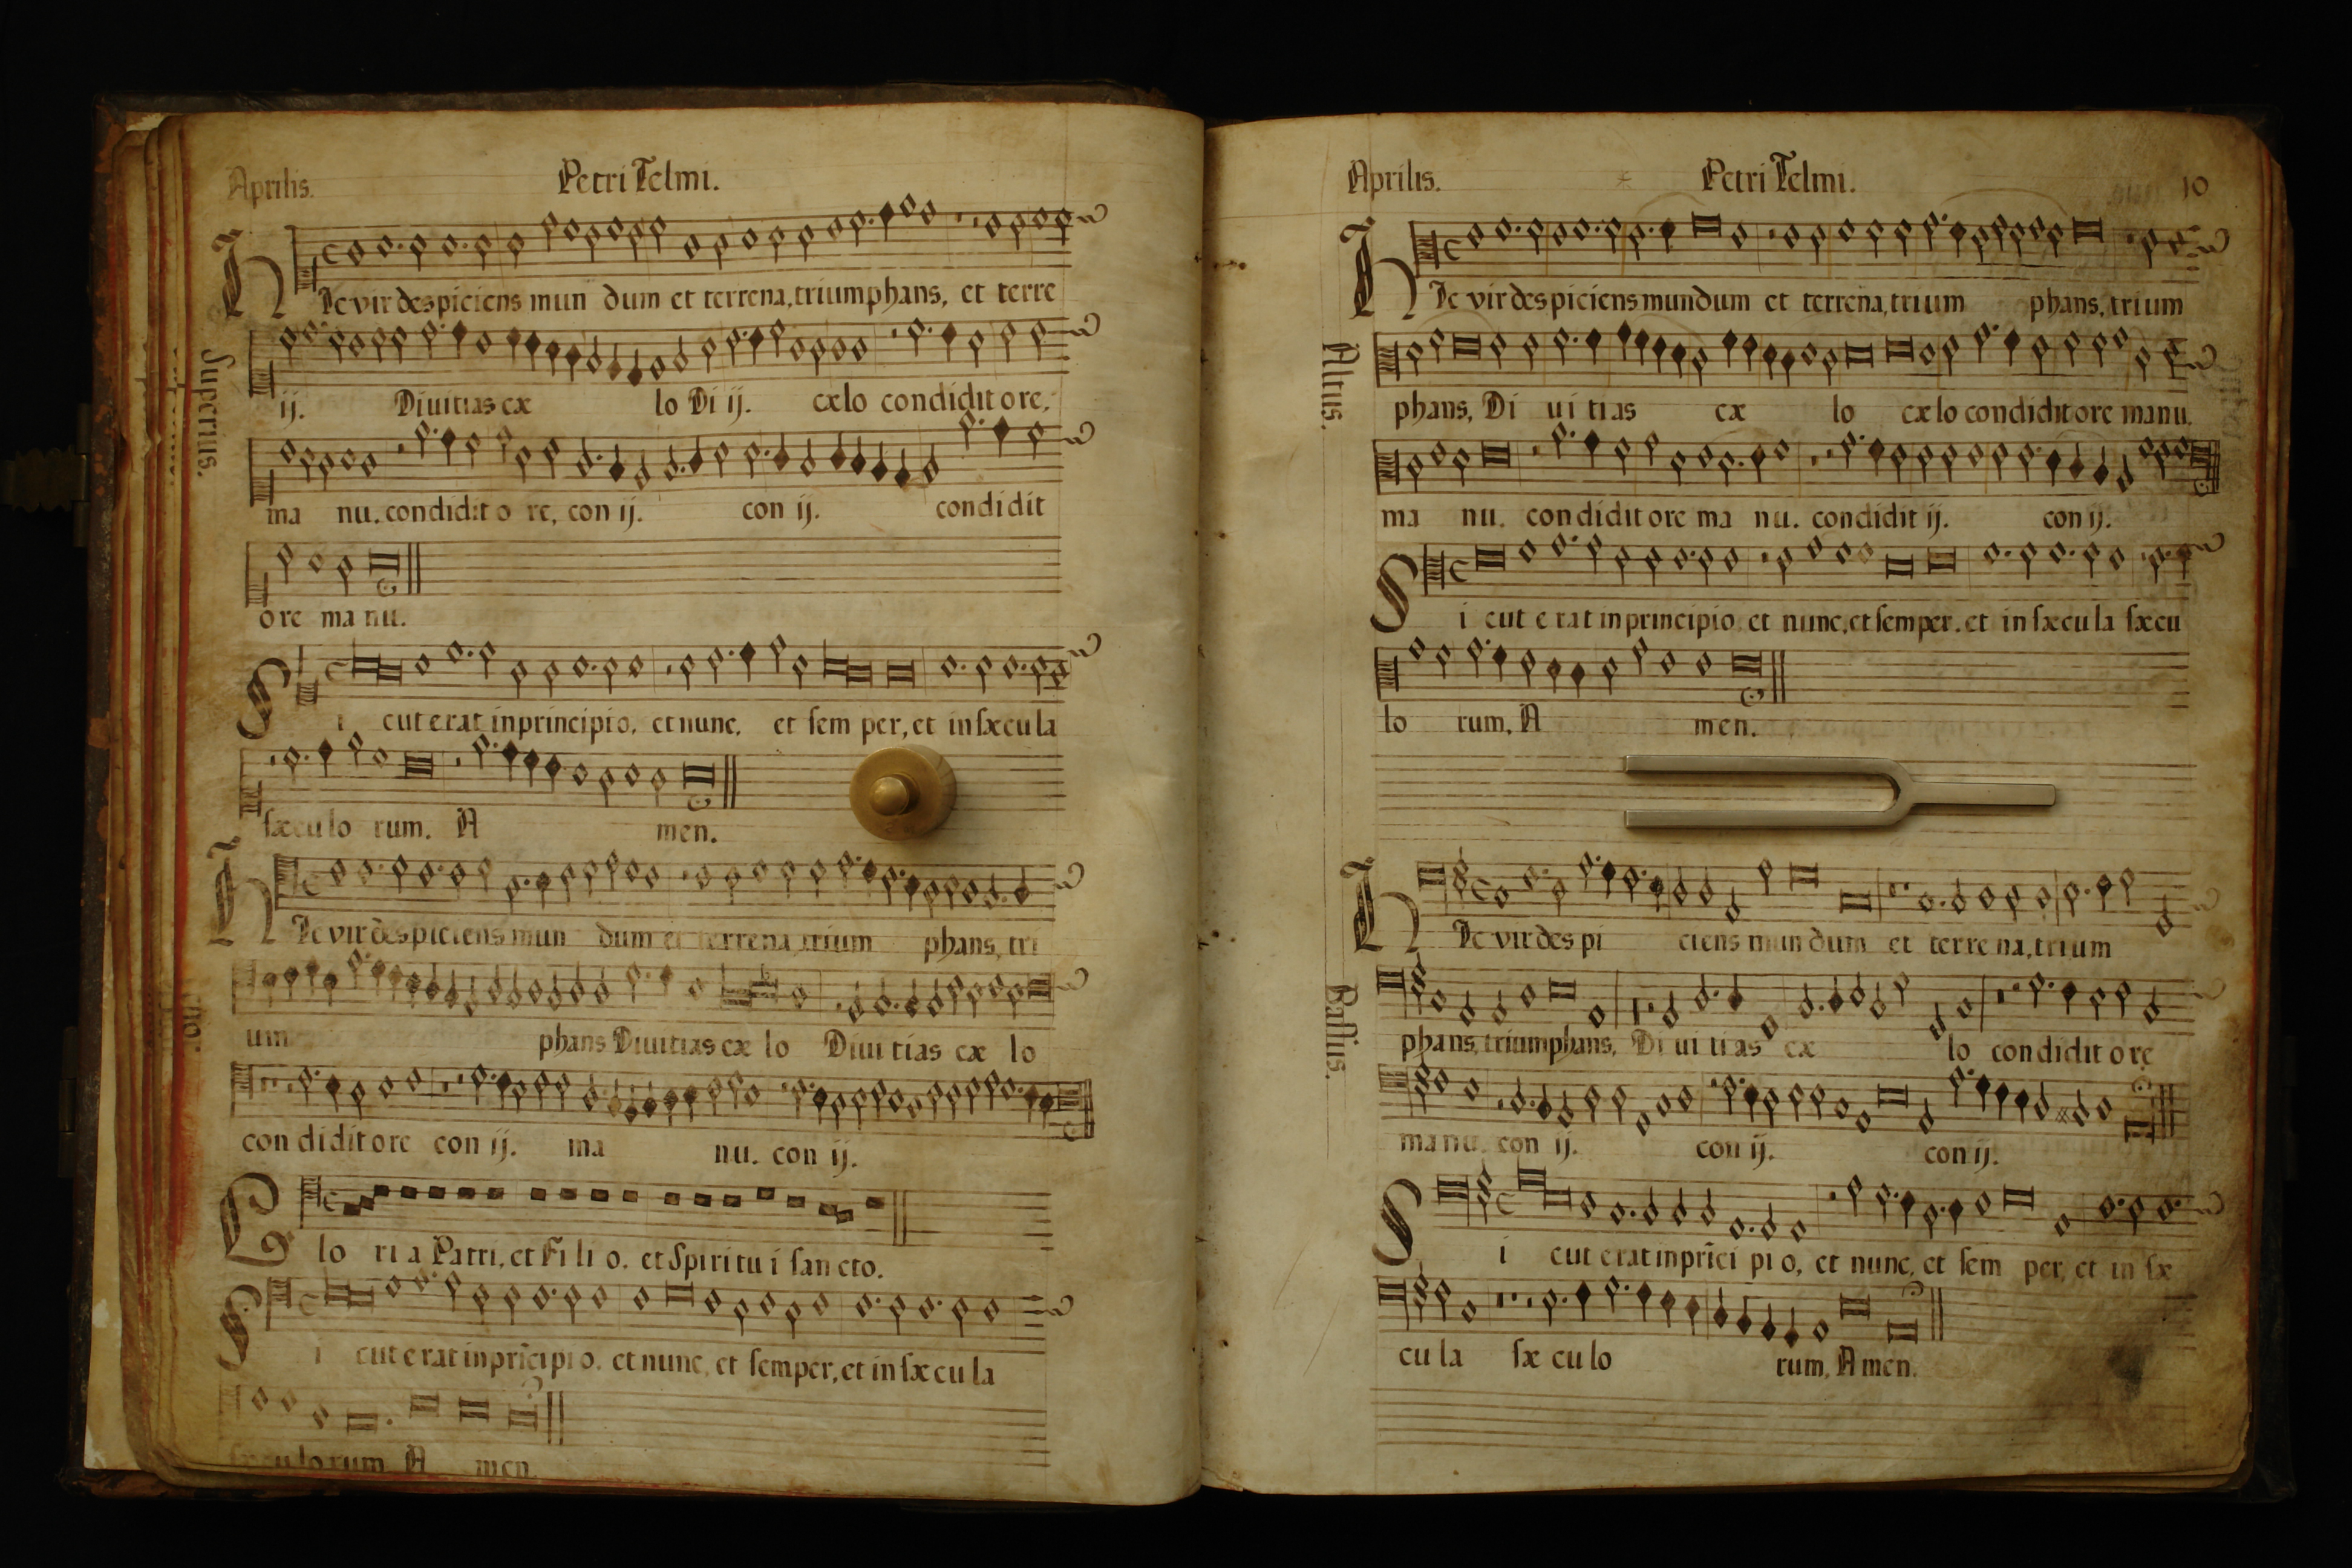 Aprilis. Petri Telmi.
Superius.
Hic vir despiciens mun dum et terrena, triumphans, et terre
ij. Diuitias cæ lo Di ij. cælo condidit ore,
ma nu. condidit o re, con ij. con ij. condidit
ore ma nu.
Si cut erat in principio, et nunc, et sem per, et in sæcula
sæculo rum. A men.
Hic vir despiciens mun dum et terrena, trium phans, tri
um phans Diuitias cæ lo Diui tias cæ lo
con didit ore con ij. ma nu. con ij.
Glo ri a Patri, et Fi li o, et Spiri tu i san cto.
Si cut e rat in prĩcipi o, et nunc, et semper, et in sæ cu la
sæculo rum A men.
Aprilis. Petri Telmi. 10
Altus.
Hic vir des piciens mundum et terrena, trium phans, trium
phans, Di ui tias cæ lo cælo condidit ore manu.
ma nu. condidit ore ma nu. condidit ij. con ij.
Si cut e rat in principio, et nunc, et semper, et in sæcu la sæcu
lo rum, A men.
Bassus.
Hic vir des pi ciens mun dum et terre na, trium
phans, triumphans, Di ui ti as cæ lo condidit o re
ma nu. con ij. con ij. con ij.
Si cut erat in prĩci pi o, et nunc, et sem per, et in sæ
cu la sæ cu lo rum, A men.